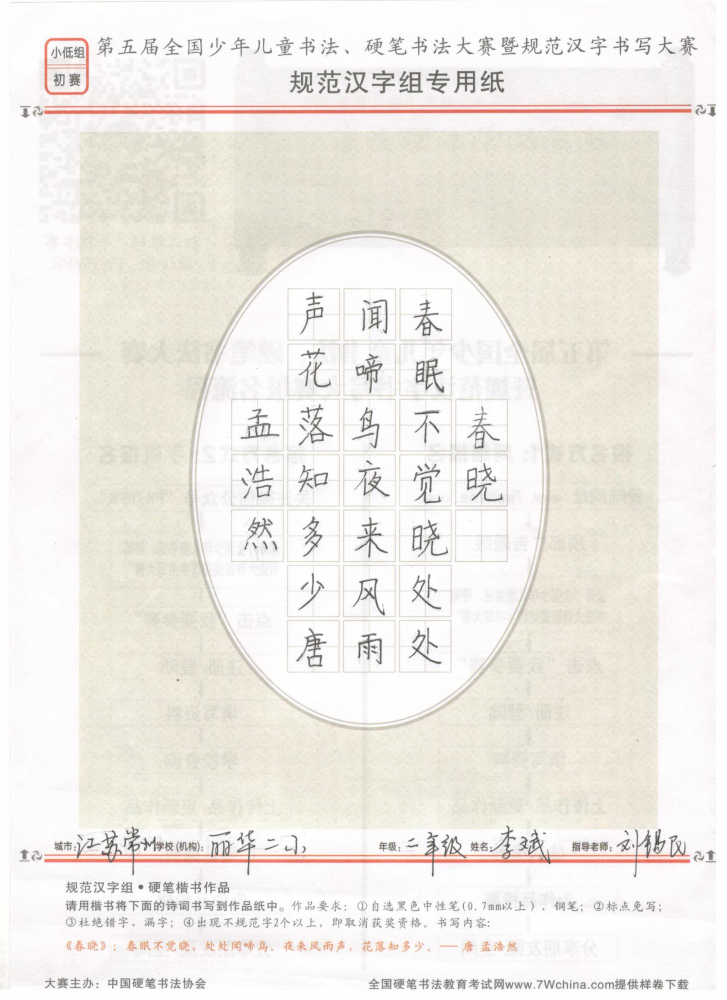 小低组
初赛
第五届全国少年儿童书法、硬笔书法大赛暨规范汉字书写大赛
规范汉字组专用纸
春晓
春眠不觉晓处处
闻啼鸟夜来风雨
声花落知多少唐
孟浩然
城市：江苏常州 学校(机构)：丽华二小 年级：二年级 姓名：李斌 指导老师：刘锡民
规范汉字组•硬笔楷书作品
请用楷书将下面的诗词书写到作品纸中。作品要求：①自选黑色中性笔(0.7mm以上)、钢笔；②标点免写；
③杜绝错字、漏字；④出现不规范字2个以上，即取消获奖资格。书写内容：
《春晓》：春眠不觉晓，处处闻啼鸟。夜来风雨声，花落知多少。——唐 孟浩然
大赛主办：中国硬笔书法协会 全国硬笔书法教育考试网www.7Wchina.com提供样卷下载